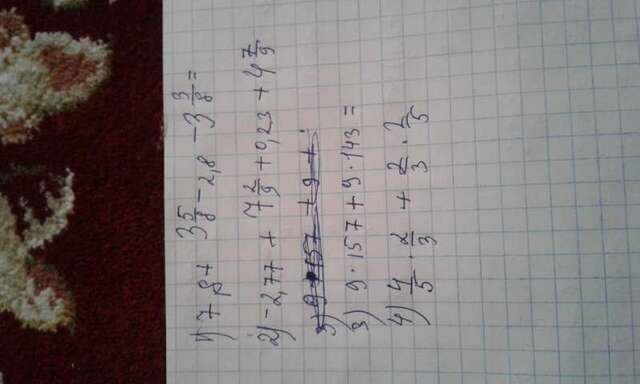 1) 7,8 + 3 5/8 - 2,8 - 3 3/8 =
2) -2,77 + 7 2/9 + 0,23 + 4 7/9
3) 9·157 + 9 +
3) 9·157 + 9·143 =
4) 4/5 · 2/3 + 2/3 ·